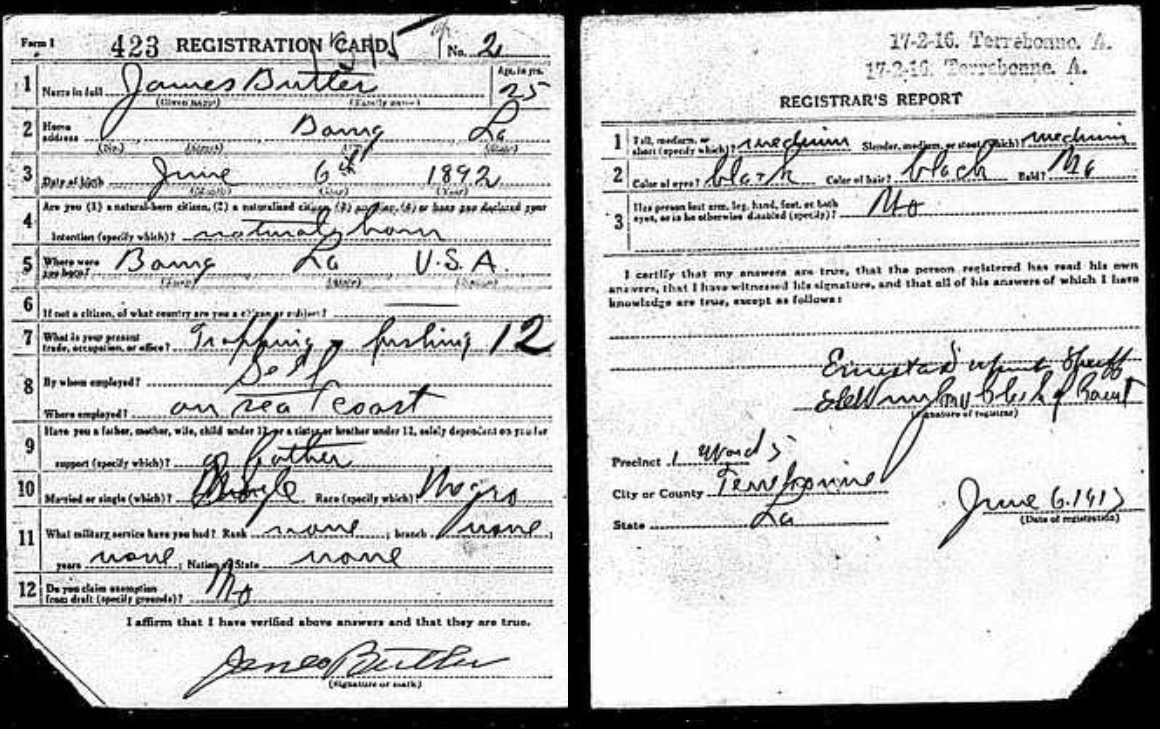 Form 1 423 REGISTRATION CARD No. 2
1 Name in full James Butler Age, in yrs. 25
(Given name) (Family name)
2 Home address Bourg La
(No.) (Street) (City) (State)
3 Date of birth June 6th 1892
(Month) (Day) (Year)
4 Are you (1) a natural-born citizen, (2) a naturalized citizen, (3) an alien, (4) or have you declared your
intention (specify which)? natural born
5 Where were you born? Bourg La U.S.A.
(Town) (State) (Nation)
6 If not a citizen, of what country are you a citizen or subject?
7 What is your present trade, occupation, or office? Trapping fishing 12
8 By whom employed? Self
Where employed? on sea coast
9 Have you a father, mother, wife, child under 12, or a sister or brother under 12, solely dependent on you for
support (specify which)? father
10 Married or single (which)? Single Race (specify which)? Negro
11 What military service have you had? Rank none ; branch none ;
years none ; Nation or State none
12 Do you claim exemption from draft (specify grounds)? No
I affirm that I have verified above answers and that they are true.
James Butler
(Signature or mark)
17-2-16. Terrebonne. A.
17-2-16. Terrebonne. A.
REGISTRAR'S REPORT
1 Tall, medium, or short (specify which)? medium Slender, medium, or stout (which)? medium
2 Color of eyes? black Color of hair? black Bald? No
3 Has person lost arm, leg, hand, foot, or both eyes, or is he otherwise disabled (specify)? No
I certify that my answers are true, that the person registered has read his own
answers, that I have witnessed his signature, and that all of his answers of which I have
knowledge are true, except as follows:
(Signature of registrar)
Precinct 1 Ward 5
City or County Terrebonne
State La
June 6. 1917
(Date of registration)